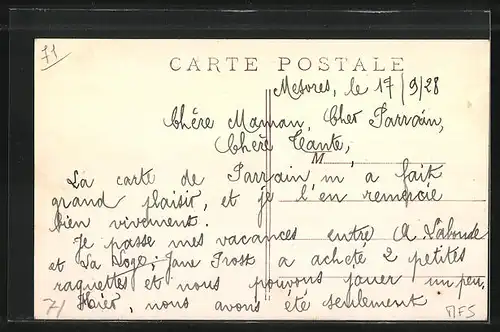 71
CARTE POSTALE
Mesvres, le 17/9/28
Chère Maman, Cher Parrain,
Chère Tante,
M
La carte de Parrain m'a fait
grand plaisir, et je l'en remercie
bien vivement.
Je passe mes vacances entre
et La Loge; Jane Prost a acheté 2 petites
raquettes et nous pouvons jouer un peu.
Hier, nous avons été seulement
71